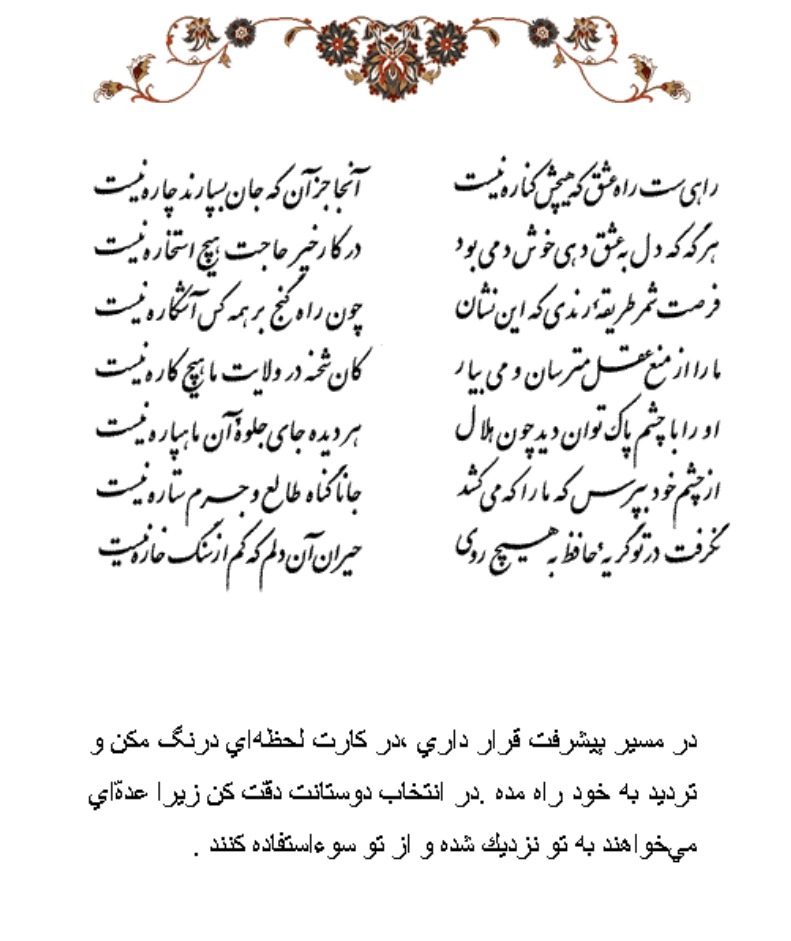 راهی‌ست راه عشق که هیچش کناره نیست آنجا جز آن که جان بسپارند چاره نیست
هر گه که دل به عشق دهی خوش دمی بود در کار خیر حاجت هیچ استخاره نیست
فرصت شمر طریقهٔ رندی که این نشان چون راه گنج بر همه کس آشکاره نیست
ما را از منع عقل مترسان و می بیار کان شحنه در ولایت ما هیچ کاره نیست
او را با چشم پاک توان دید چون هلال هر دیده جای جلوهٔ آن ماهپاره نیست
از چشم خود بپرس که ما را که می‌کشد جانا گناه طالع و جرم ستاره نیست
نگرفت در تو گریهٔ حافظ به هیچ روی حیران آن دلم که کم از سنگ خاره نیست
در مسیر پیشرفت قرار داري ،در کارت لحظه‌اي درنگ مکن و
تردید به خود راه مده .در انتخاب دوستانت دقّت کن زیرا عدّه‌اي
مي‌خواهند به تو نزدیك شده و از تو سوءاستفاده کنند .